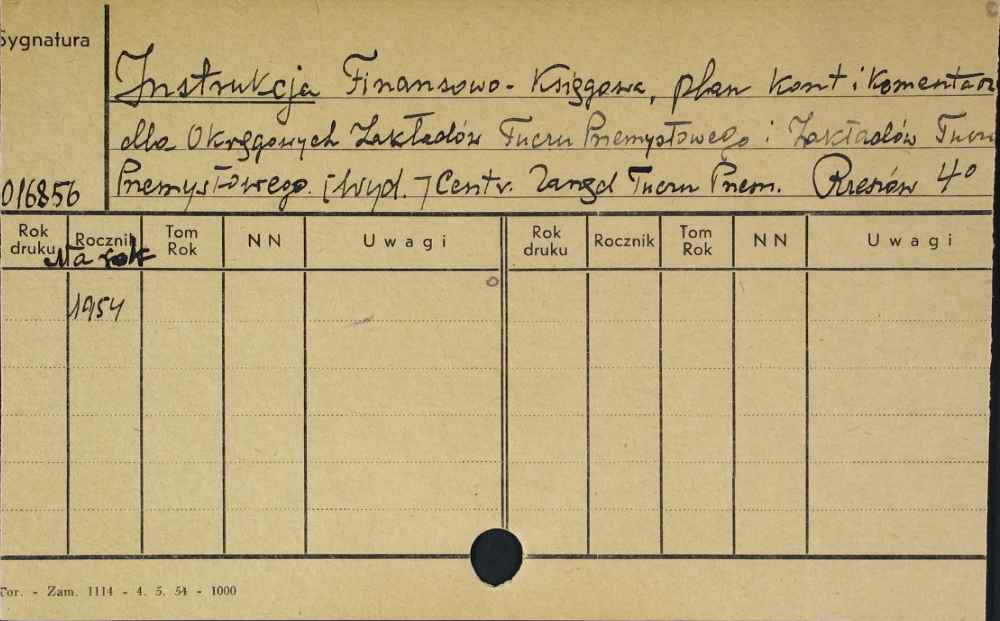 Sygnatura
Instrukcja Finansowo-Księgowa, plan kont i komentarz
dla Okręgowych Zakładów Tuczu Przemysłowego i Zakładów Tuczu
016856 Przemysłowego. [Wyd.] Centr. Zarząd Tuczu Przem. Rzeszów 4°
Rok druku Rocznik Tom Rok NN Uwagi Rok druku Rocznik Tom Rok NN Uwagi
Na rok
1954
Tor. - Zam. 1114 - 4. 5. 54 - 1000